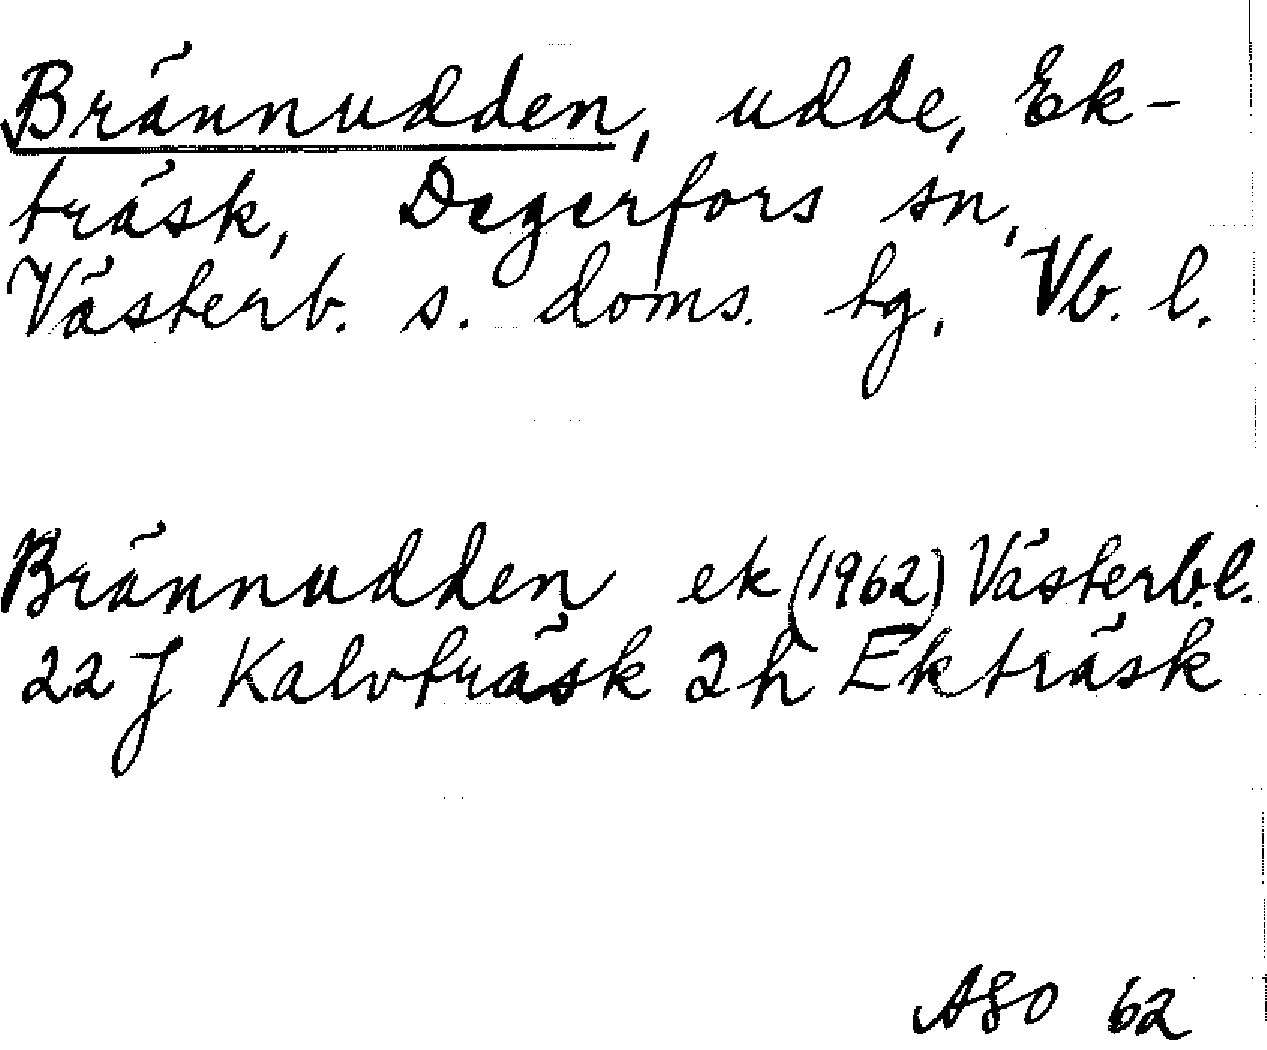 Brännudden, udde, Ek-
träsk, Degerfors sn,
Västerb. s. doms. tg, Vb. l.
Brännudden ek (1962) Västerb.l.
22 J Kalvträsk 2h Ekträsk
ASO 62